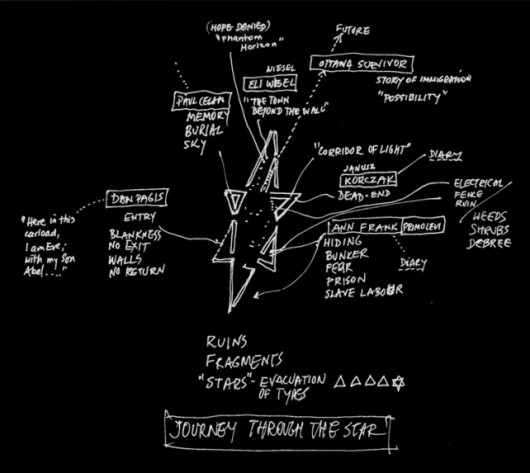 (HOPE DENIED)
"Phantom
Horizon"
FUTURE
OTTAWA SURVIVOR
STORY OF IMMIGRATION
"POSSIBILITY"
WIESEL
ELI WIESEL
"THE TOWN
BEYOND THE WALL"
PAUL CELAN
MEMORY
BURIAL
SKY
"CORRIDOR OF LIGHT"
JANUSZ
KORCZAK
DIARY
DEAD-END
ELECTRICAL
FENCE
RUIN
WEEDS
SHRUBS
DEBREE
DAN PAGIS
ENTRY
BLANKNESS
NO EXIT
WALLS
NO RETURN
"Here in this
carload,
I am Eve,
with my son
Abel...."
ANN FRANK
HIDING
BUNKER
FEAR
PRISON
SLAVE LABOUR
DIARY
RUINS
FRAGMENTS
"STARS" - EVALUATION
OF TYPES
JOURNEY THROUGH THE STAR